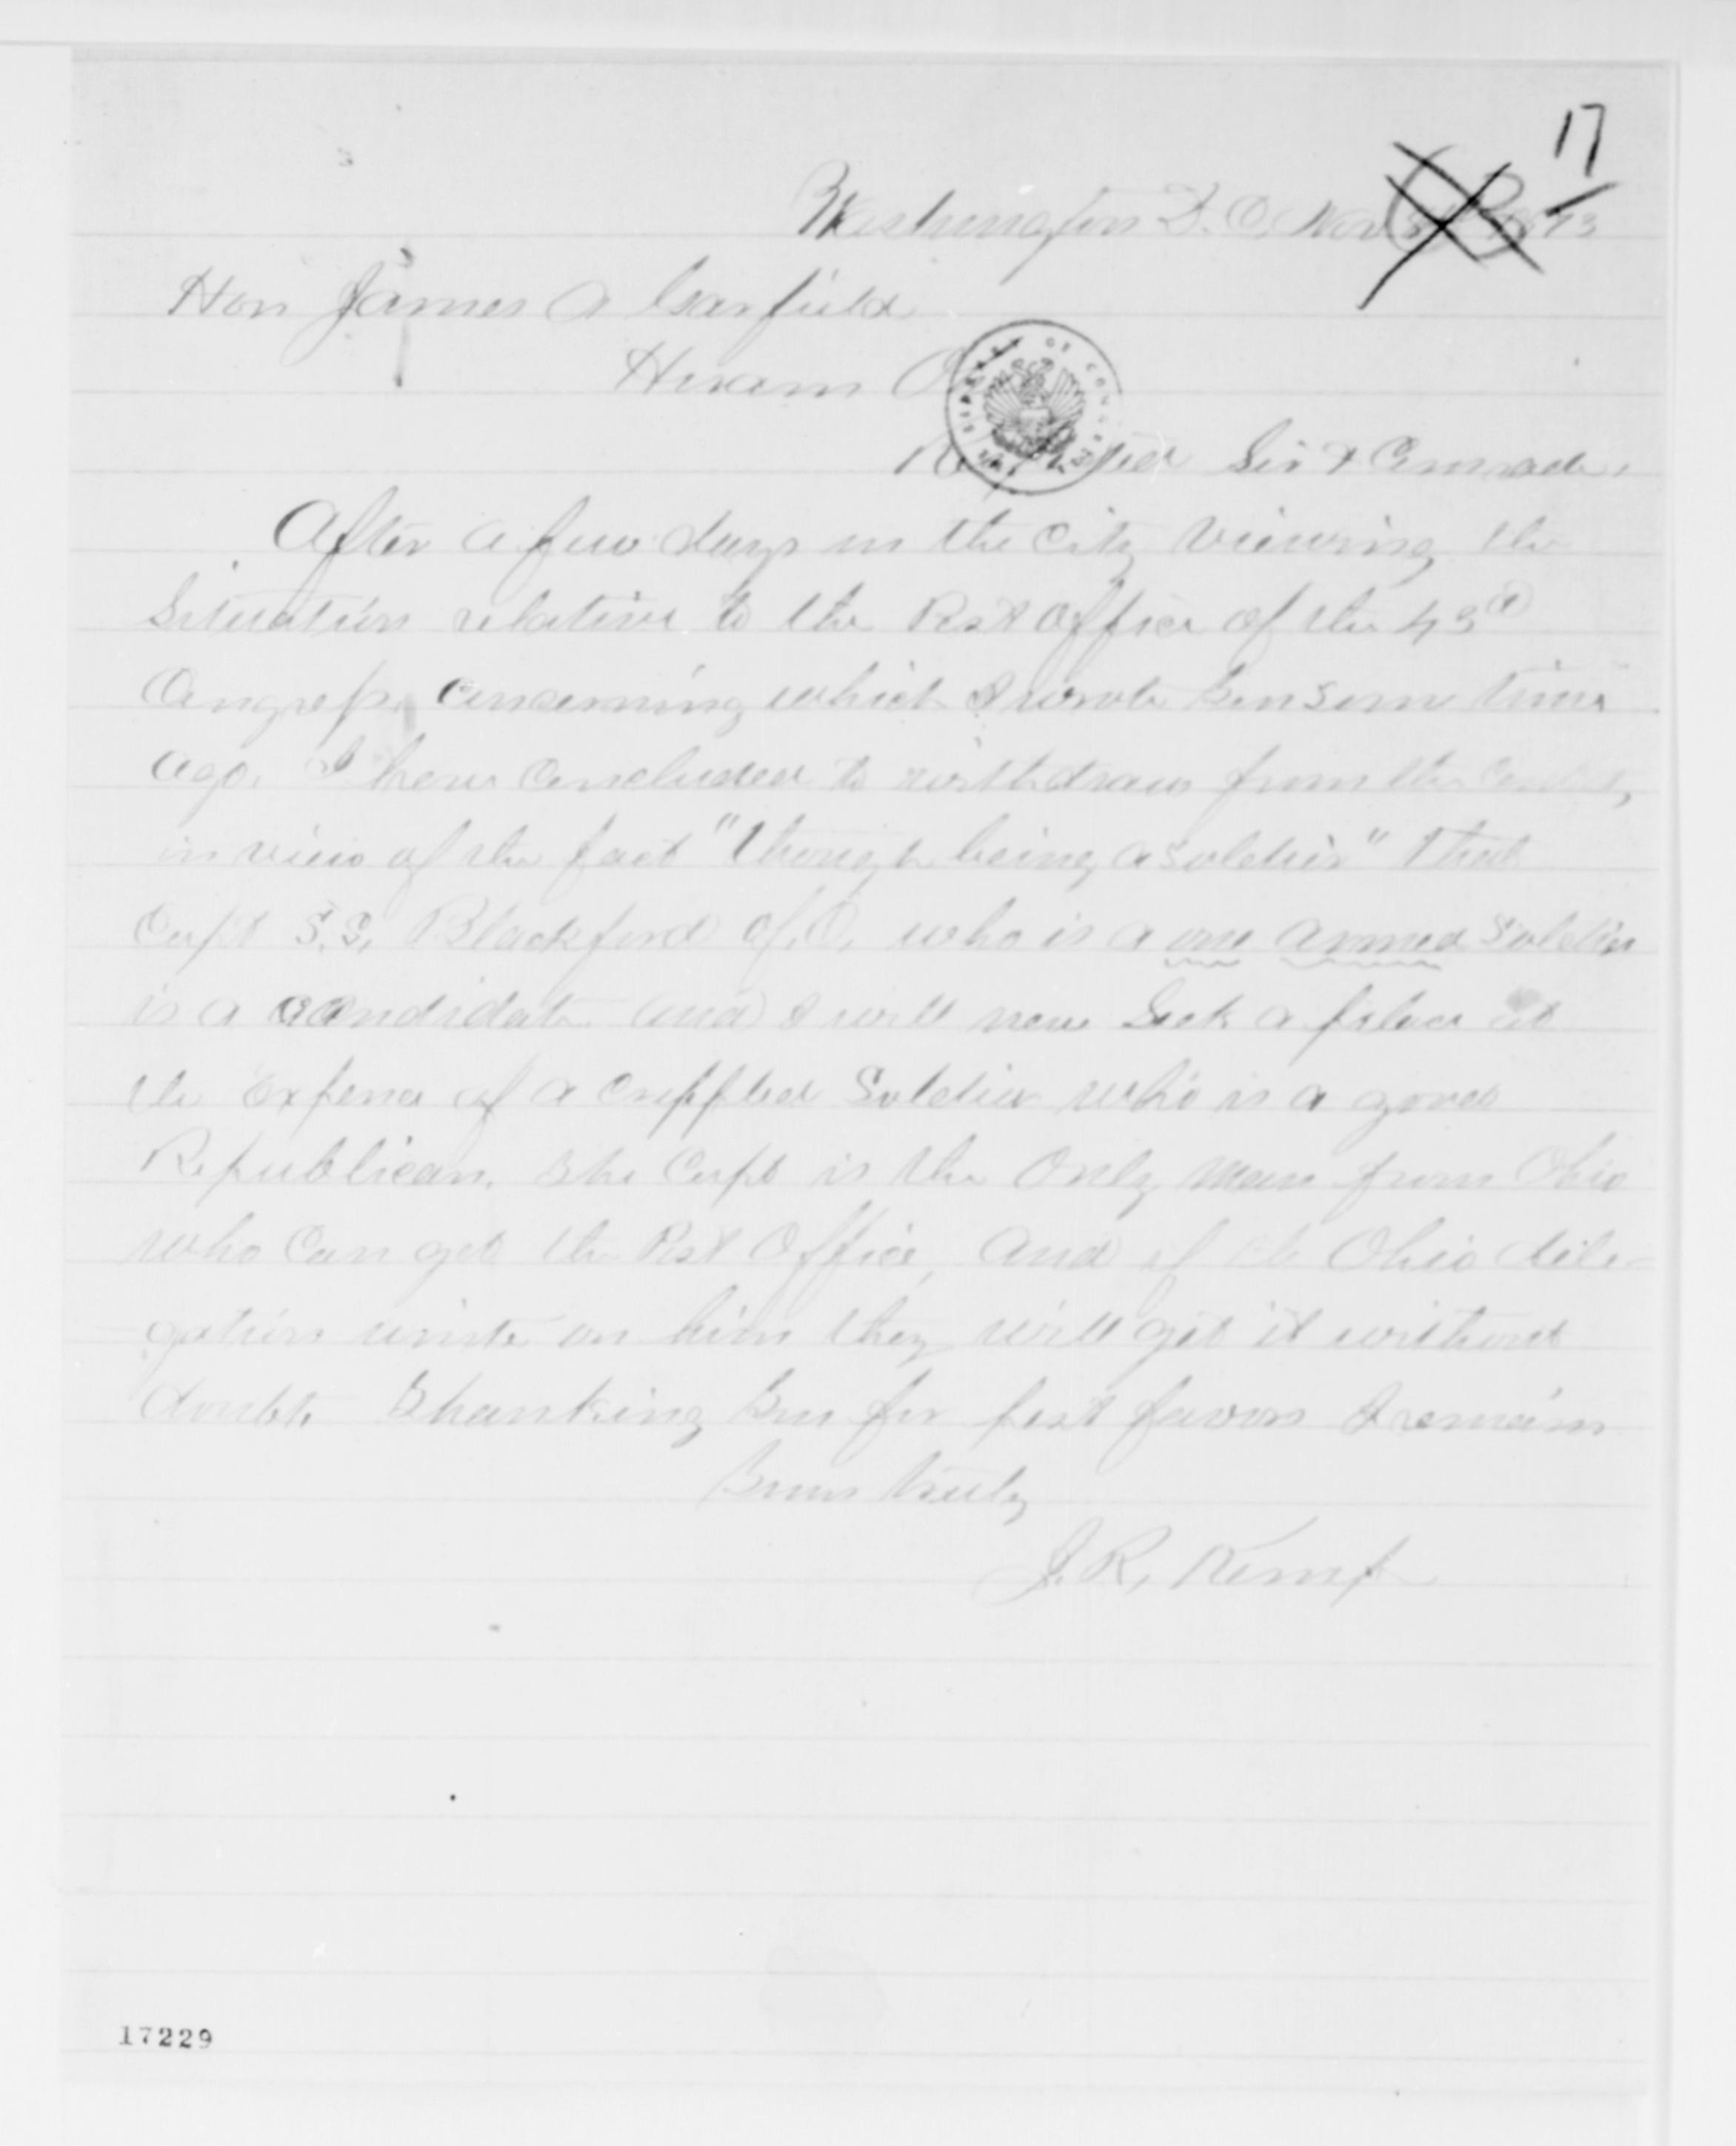 17
Washington D.C. Nov 1873
Hon James A Garfield
Hiram O
Respected Sir & Comrade,
LIBRARY OF CONGRESS
After a few days in the city viewing the
Situation relative to the Post Office of the 43d
Congress, concerning which I wrote you some time
ago. I have concluded to withdraw from the contest,
in view of the fact "though being a soldier" that
Capt S.S. Blackford of O. who is a one armed soldier
is a candidate and I will never seek a place at
the expence of a crippled Soldier who is a good
Republican. The Capt is the only man from Ohio
who can get the Post Office, and if the Ohio dele-
gation unite on him they will get it without
doubt. Thanking you for past favors I remain
Yours truly
J. R. Kemp
17229